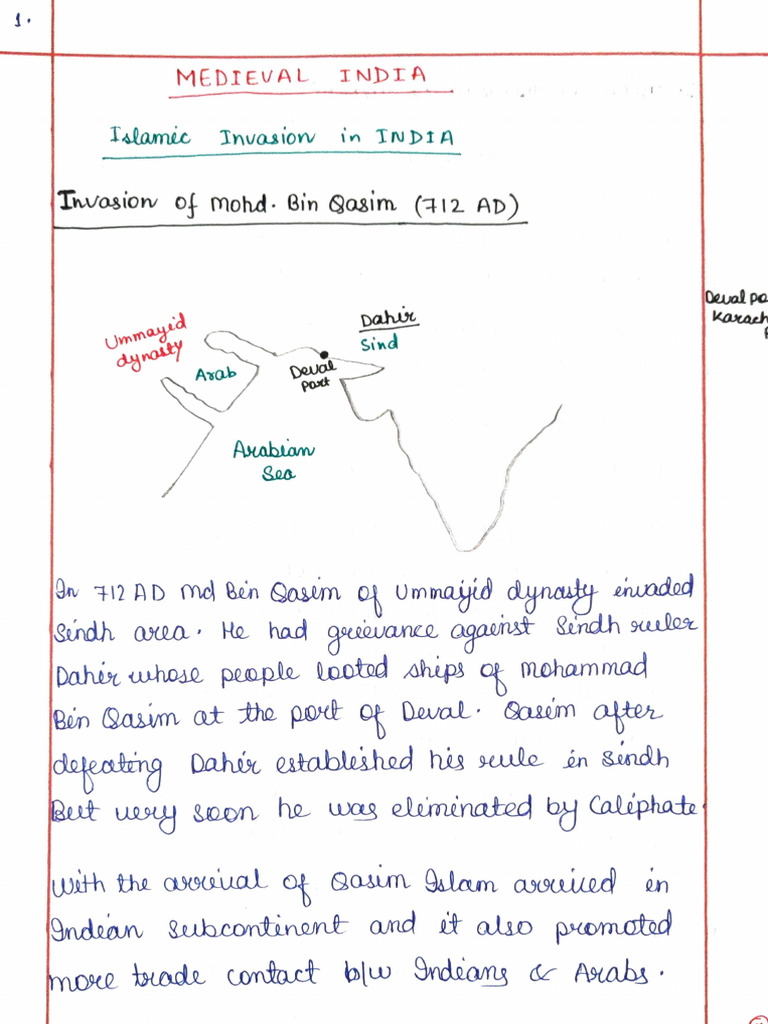 1.
MEDIEVAL INDIA
Islamic Invasion in INDIA
Invasion of Mohd. Bin Qasim (712 AD)
Ummayid
dynasty
Arab
Deval
Port
Dahir
Sind
Arabian
Sea
Deval
Karach
In 712 AD Md Bin Qasim of Ummaiyid dynasty invaded
Sindh area. He had grievance against Sindh ruler
Dahir whose people looted ships of Mohammad
Bin Qasim at the port of Deval. Qasim after
defeating Dahir established his rule in Sindh
But very soon he was eliminated by Caliphate.
With the arrival of Qasim Islam arrived in
Indian subcontinent and it also promoted
more trade contact b/w Indians & Arabs.